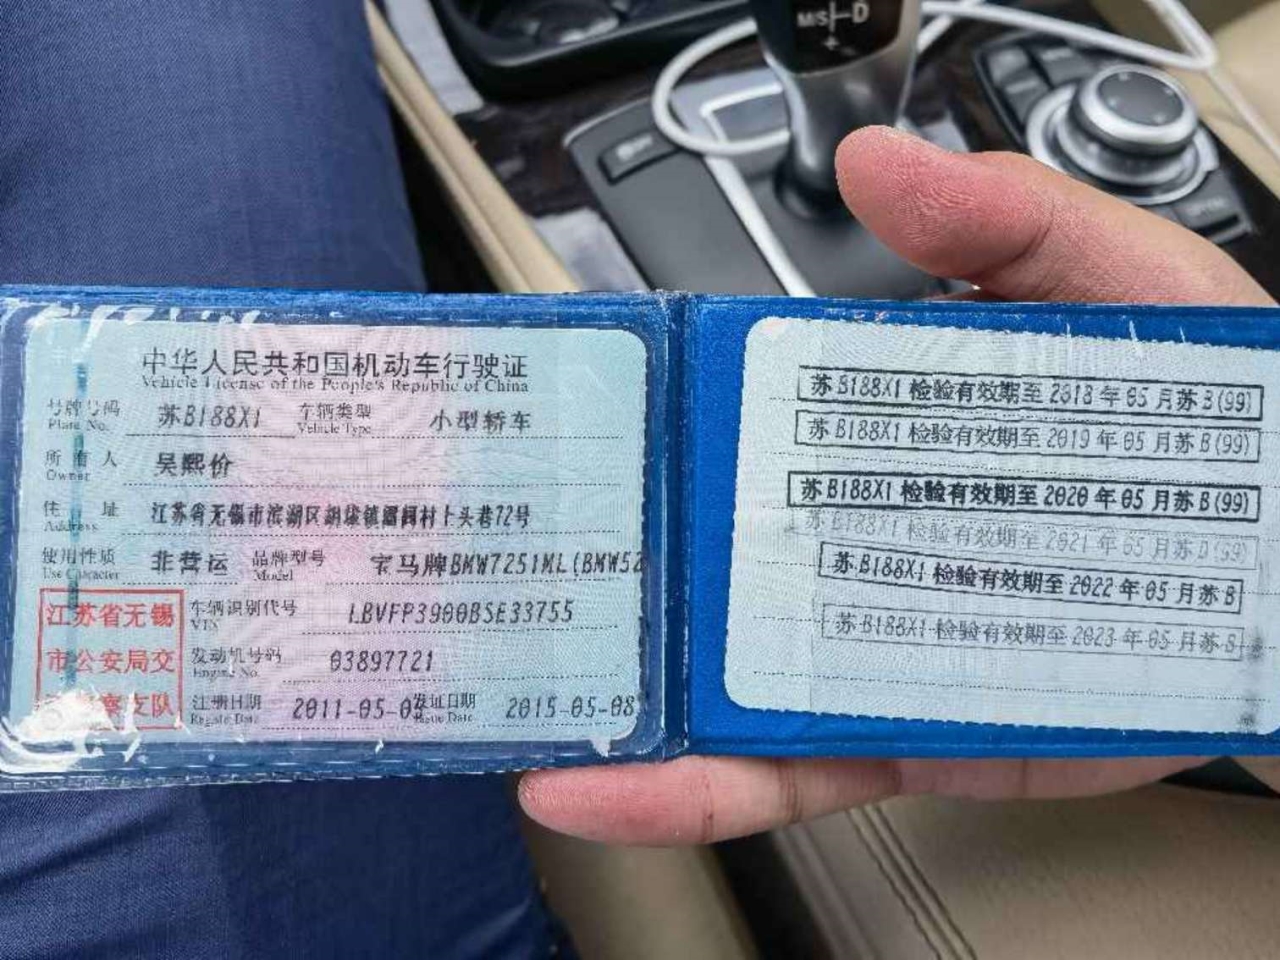 M/S D
+
中华人民共和国机动车行驶证
Vehicle License of the People's Republic of China
号牌号码 苏B188X1 车辆类型 小型轿车
Plate No. Vehicle Type
所有人 吴熙价
Owner
住址 江苏省无锡市滨湖区胡埭镇 村上头巷72号
Address
使用性质 非营运 品牌型号 宝马牌BMW7251ML(BMW52
Use Character Model
江苏省无锡
市公安局交
警支队
车辆识别代号 LBVFP3900BSE33755
VIN
发动机号码 03897721
Engine No.
注册日期 2011-05-0 发证日期 2015-05-08
Register Date Issue Date
苏B188X1 检验有效期至 2018 年 05 月苏B(99)
苏B188X1 检验有效期至 2019 年 05 月苏B(99)
苏B188X1 检验有效期至 2020 年 05 月苏B(99)
苏B188X1 检验有效期至 2021 年 05 月苏B(99)
苏B188X1 检验有效期至 2022 年 05 月苏B
苏B188X1 检验有效期至 2023 年 05 月苏B